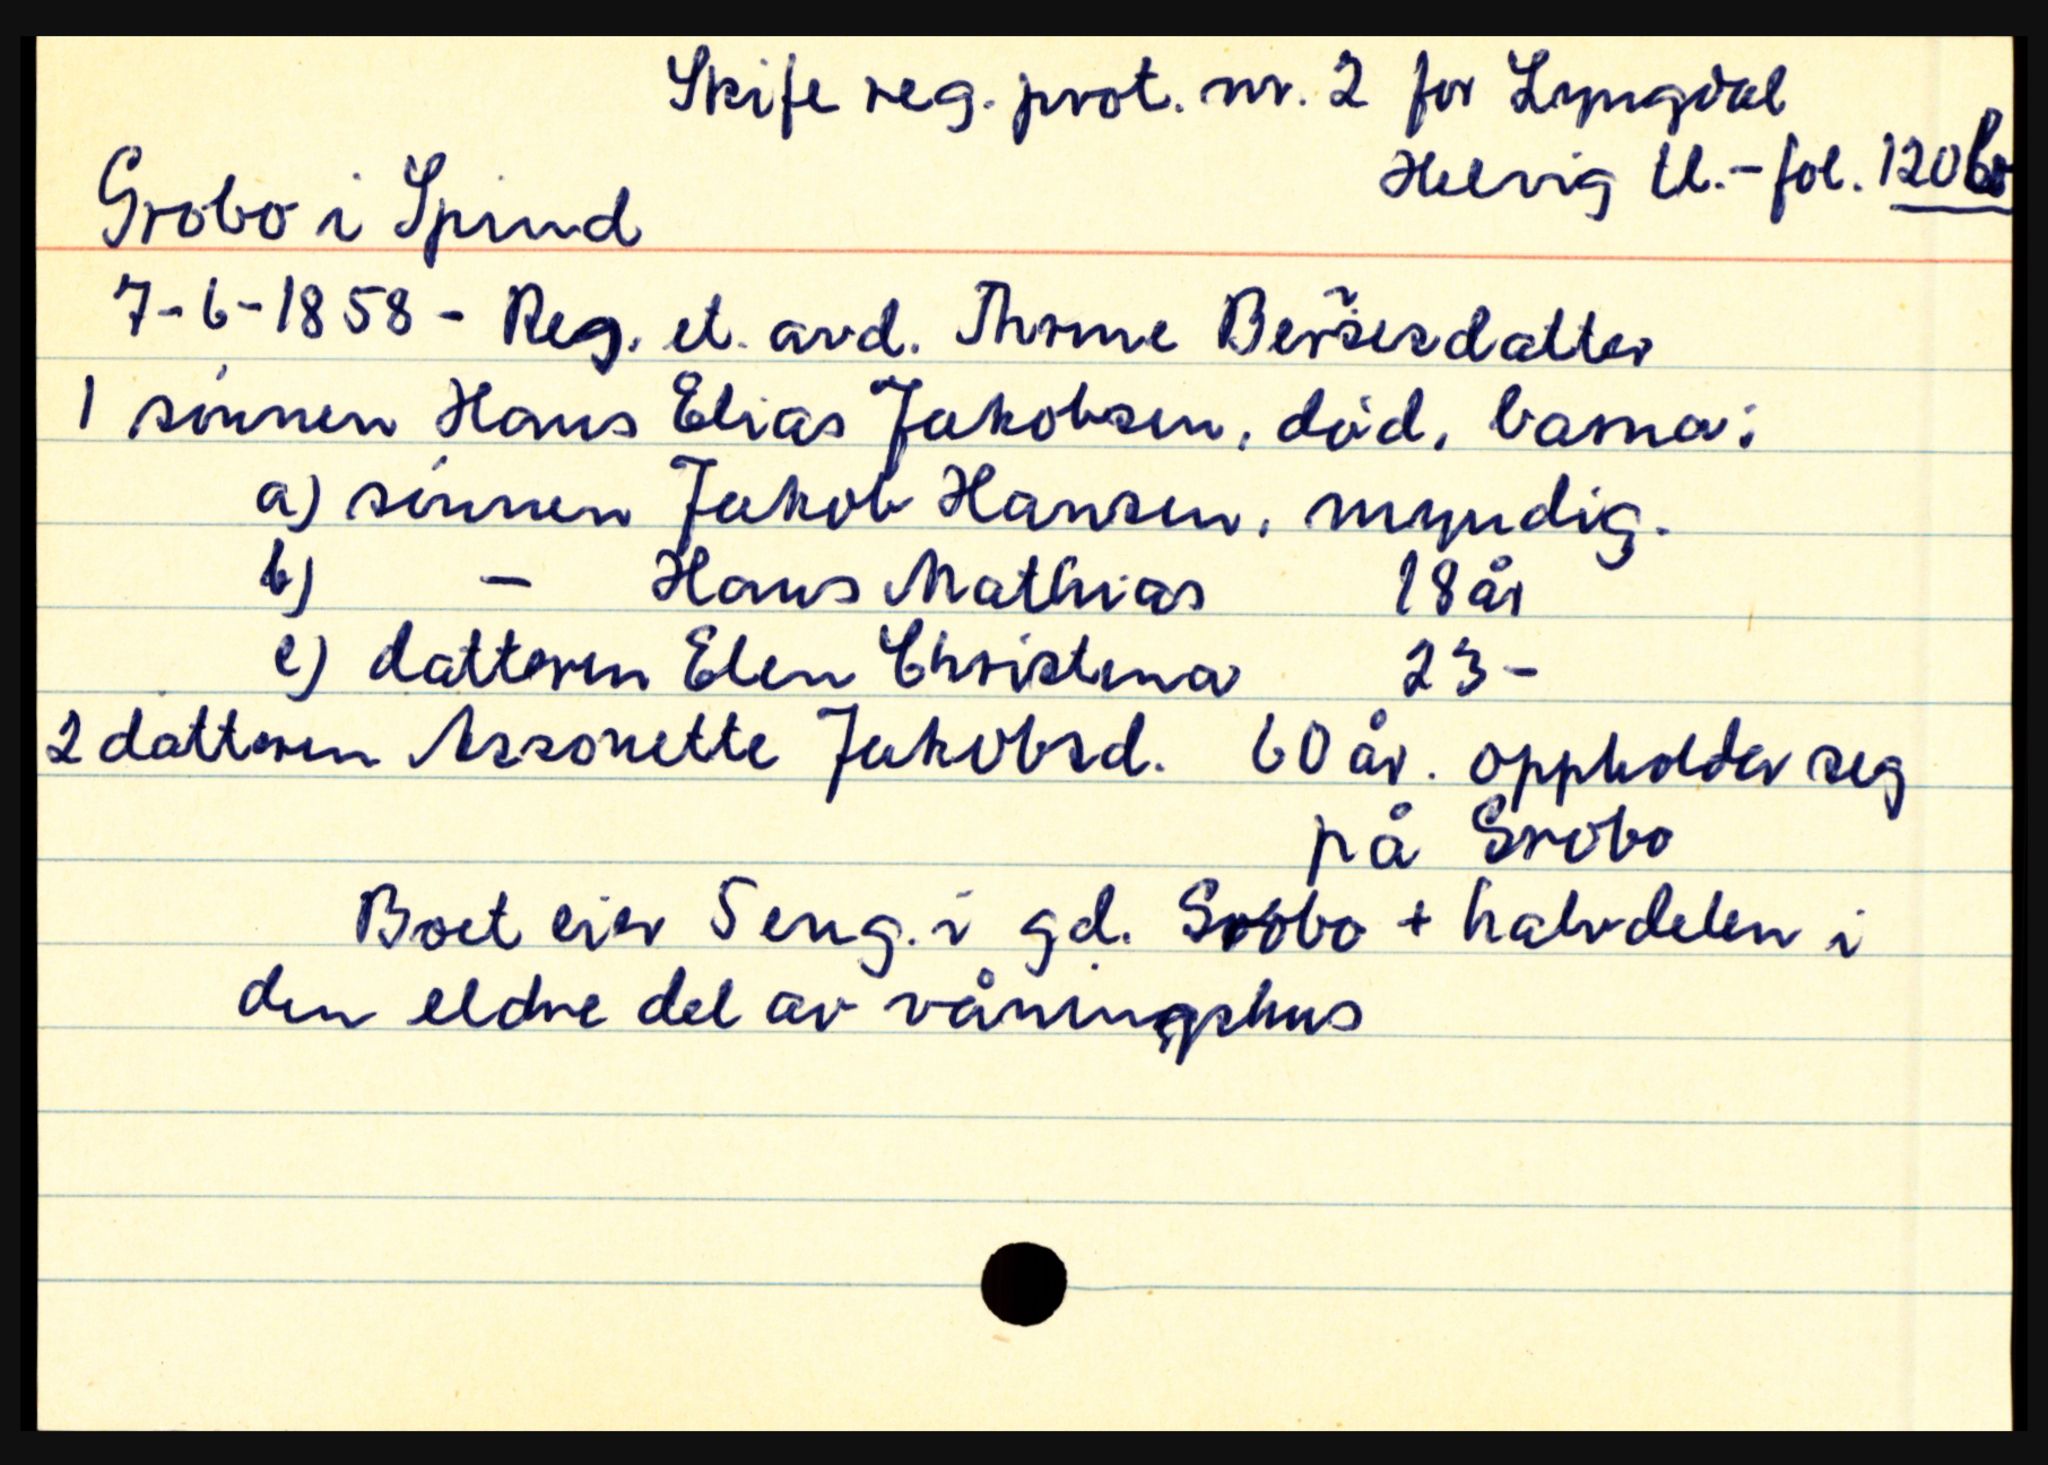 Skife reg. prot. nr. 2 for Lyngdal
Helvig tl. - fol. 120 b
Gråbo i Spind
7-6-1858 - Reg. et. avd. Thrine Beršesdatter
1 sønnen Hans Elias Jakobsen, død, barna:
a) sønnen Jakob Hansen, myndig.
b) - Hans Mathias 18 år
c) datteren Elen Christina 23 -
2 datteren Assonette Jakobsd. 60 år. oppholder seg
på Gråbo
Boet eier 5 eng. i gd. Gråbo + halvdelen i
den eldre del av våningshus